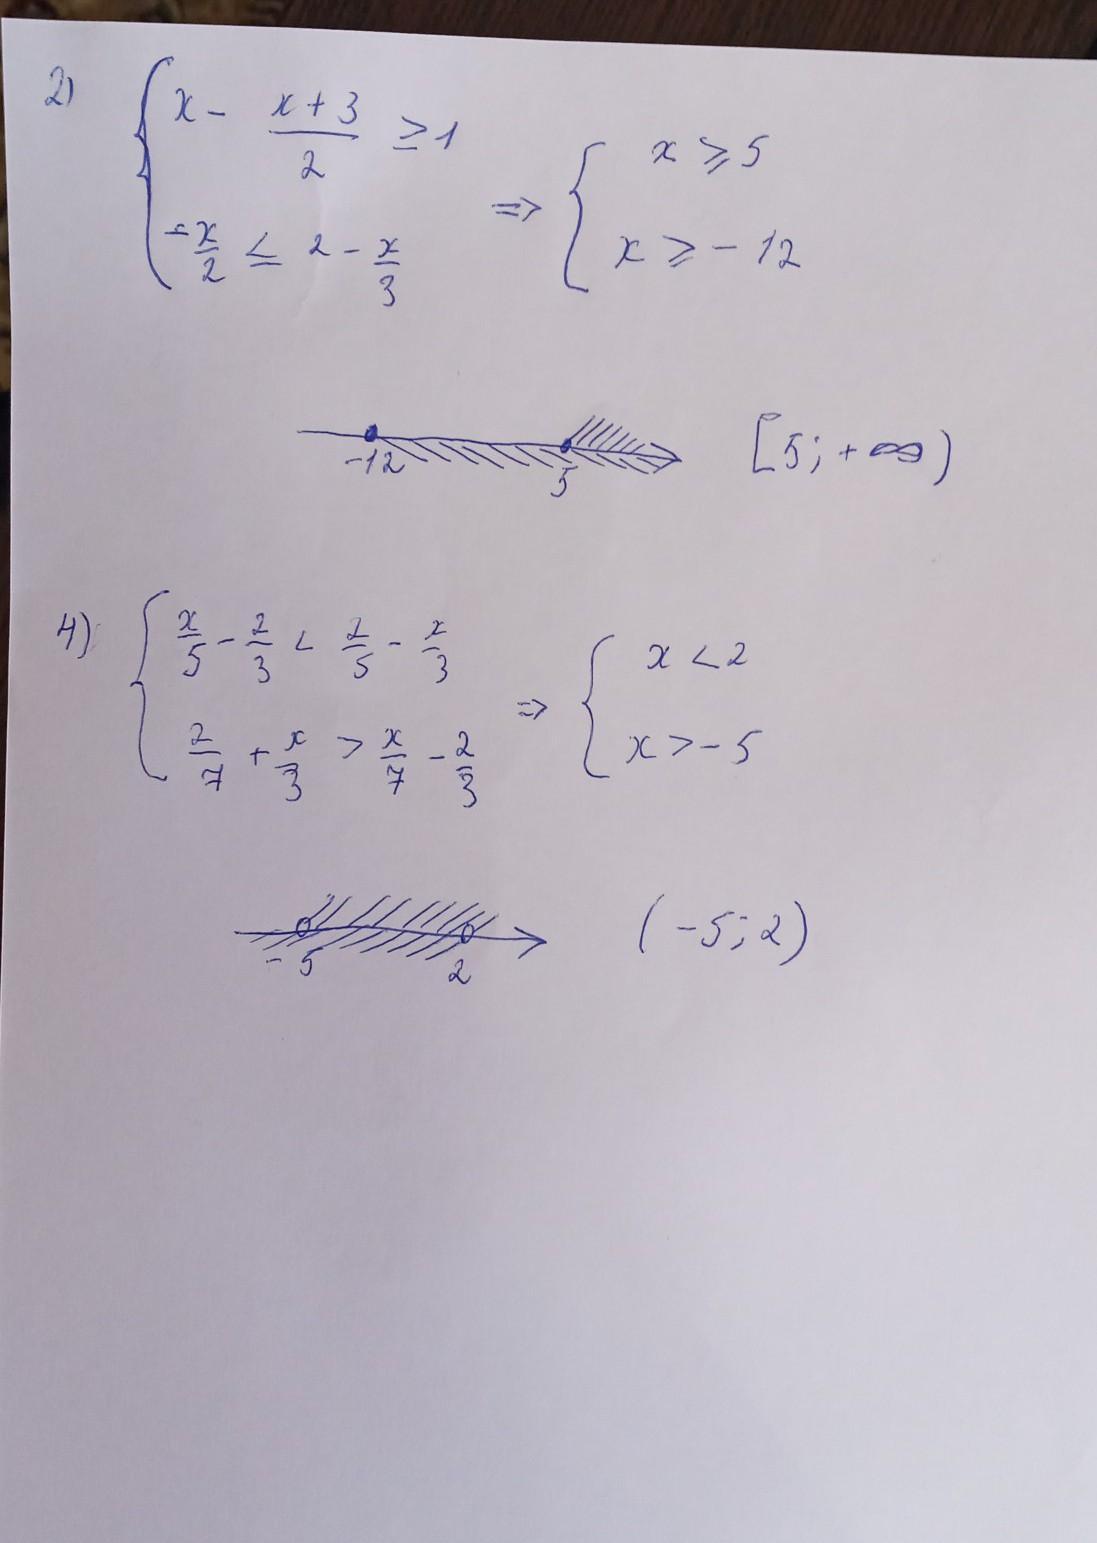 2) { x - (x+3)/2 ≥ 1
-x/2 ≤ 2 - x/3
=> { x ≥ 5
x ≥ -12
-12 5 [5; +∞)
4) { x/5 - 2/3 < 2/5 - x/3
2/7 + x/3 > x/7 - 2/3
=> { x < 2
x > -5
-5 2 (-5; 2)